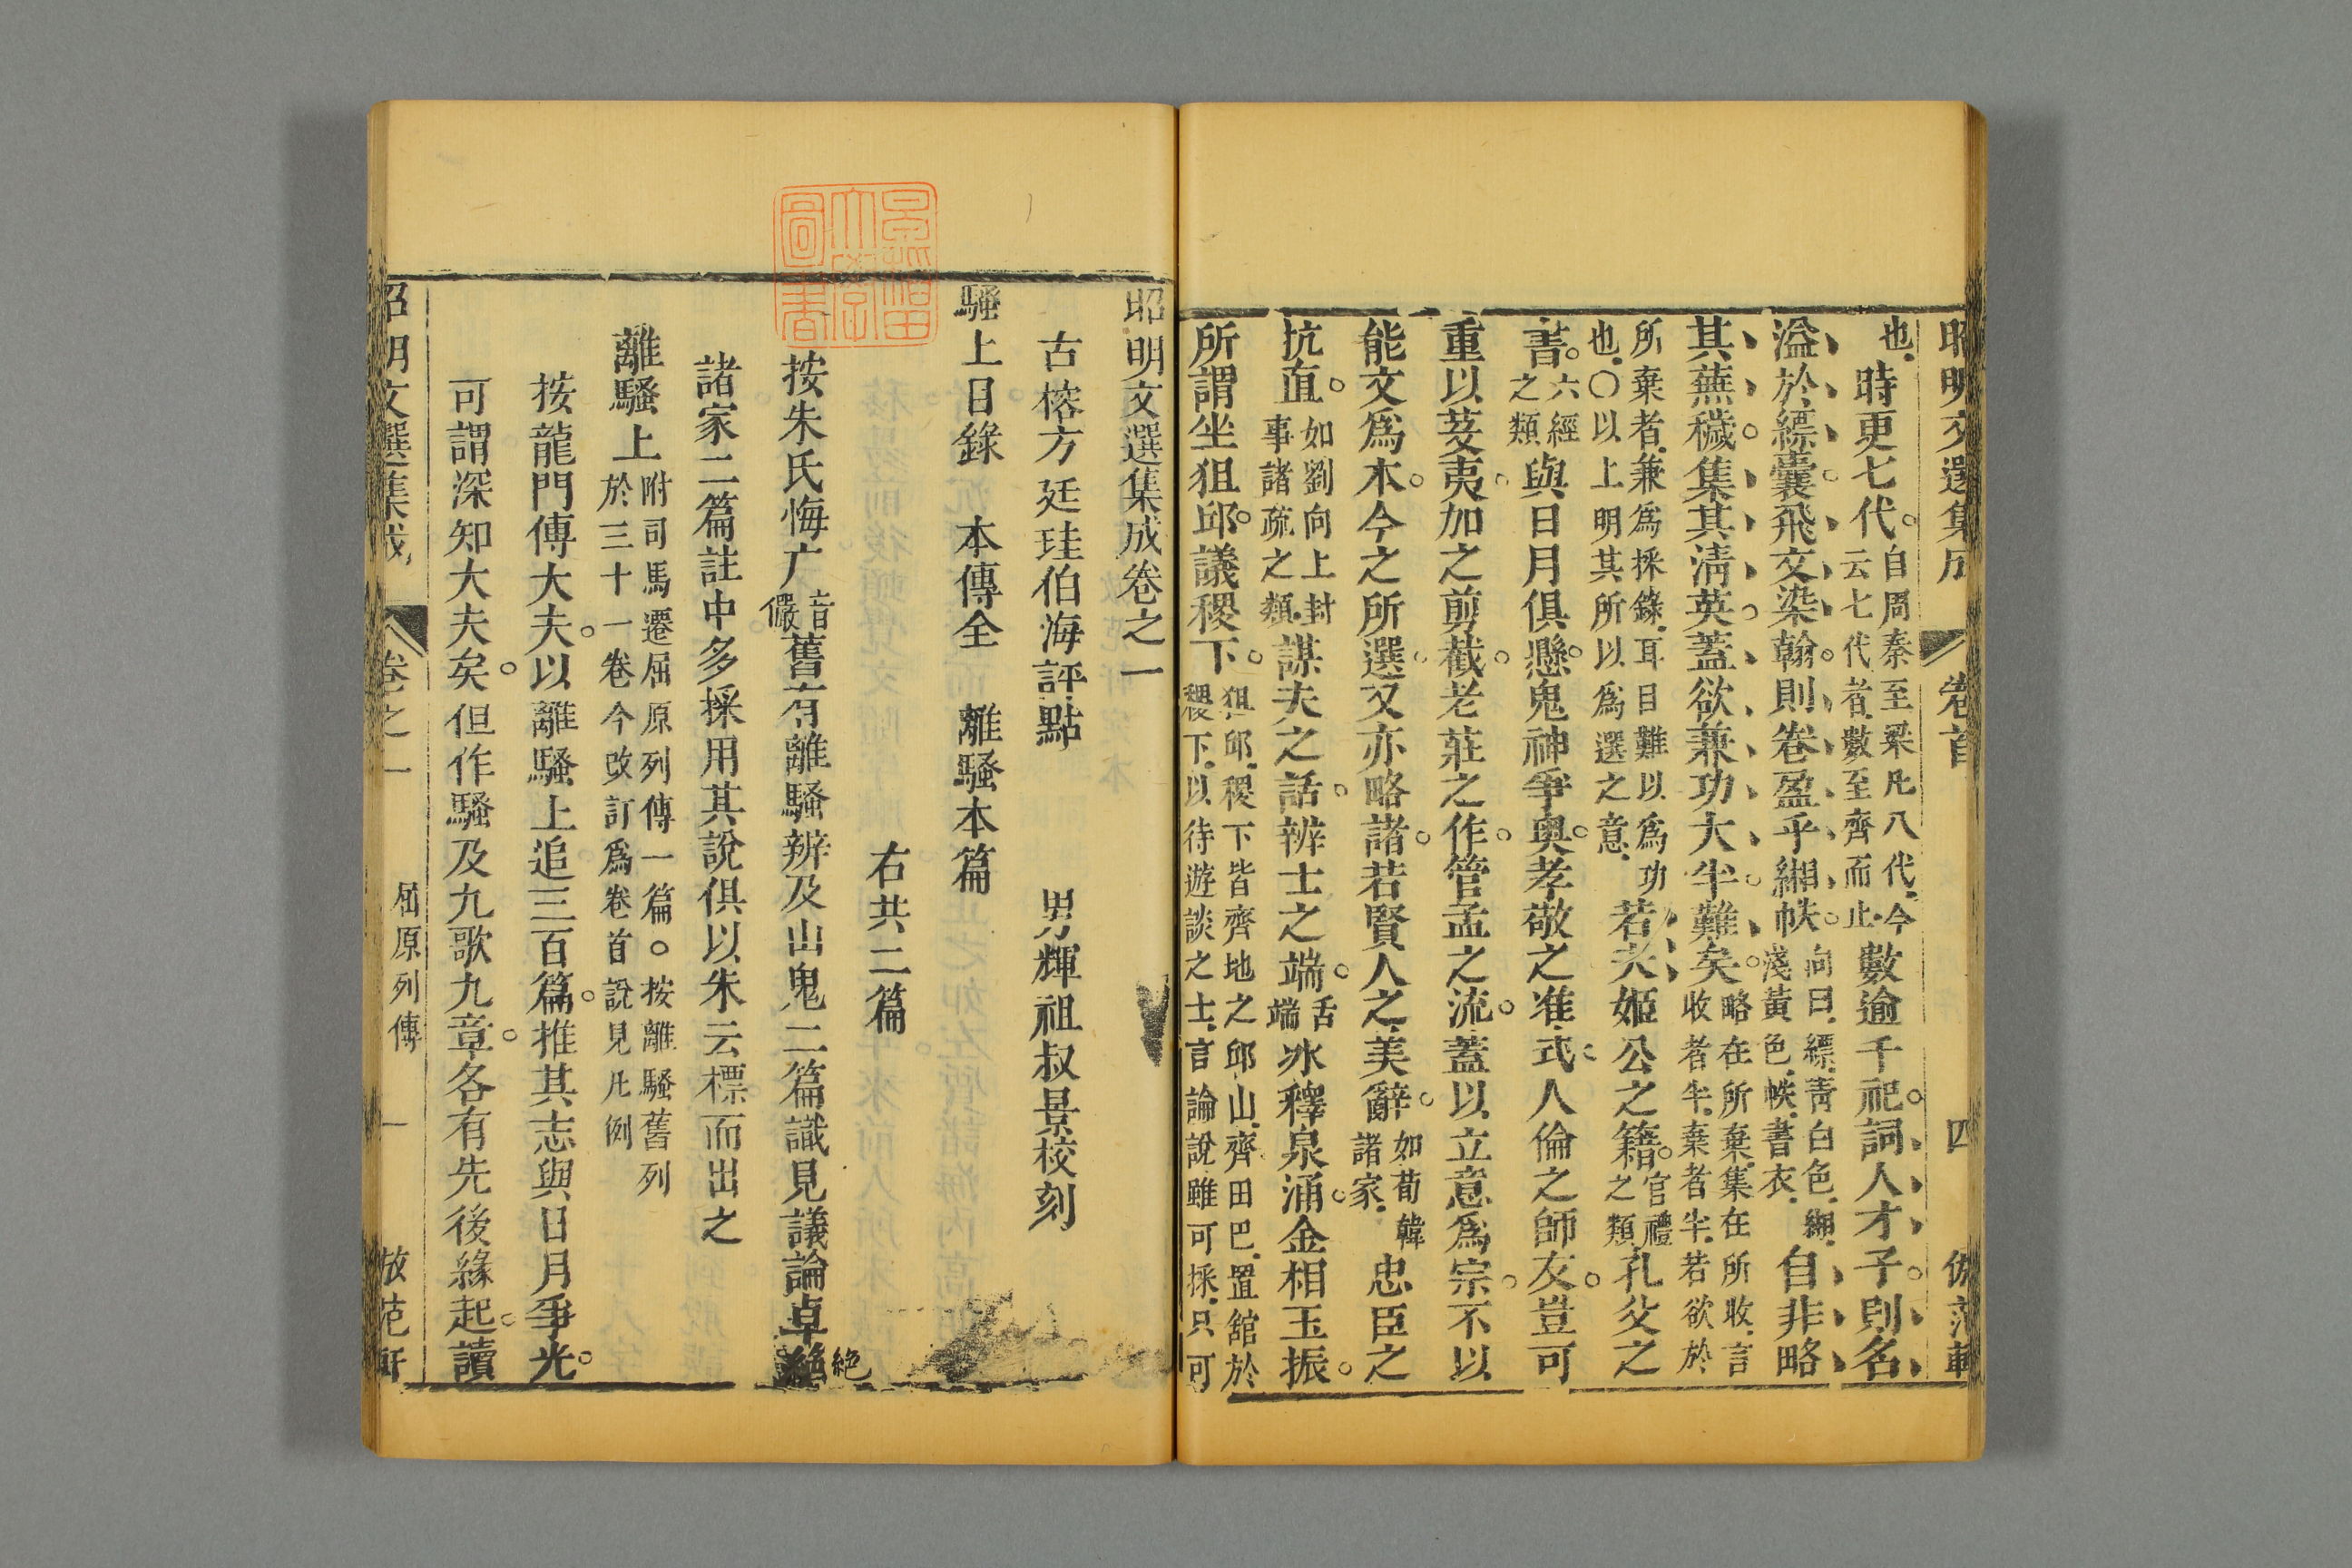 昭明文選集成 卷首 四 倣范軒
也時更七代自周秦至梁凡八代今云七代者數至齊而止數逾千祀詞人才子則名
溢於縹囊飛文染翰則卷盈乎緗帙向曰縹青白色緗淺黃色帙書衣自非略
其蕪穢集其清英蓋欲兼功大半難矣略在所棄集在所收言收者半棄者半若欲於
所棄者兼爲採錄耳目難以爲功也〇以上明其所以爲選之意若夫姬公之籍官禮之類孔父之
書六經之類與日月俱懸鬼神爭奧孝敬之准式人倫之師友豈可
重以芟夷加之剪截老莊之作管孟之流蓋以立意爲宗不以
能文爲本今之所選又亦略諸若賢人之美辭如荀韓諸家忠臣之
抗直如劉向上封事諸疏之類謀夫之話辨士之端舌端冰釋泉涌金相玉振
所謂坐狙邱議稷下狙邱稷下皆齊地之邱山齊田巴置舘於稷下以待遊談之士言論說雖可採只可
昭明文選集成卷之一
古榕方廷珪伯海評點 男輝祖叔景校刻
騷上目錄 本傳全 離騷本篇
右共二篇
按朱氏悔广音儼舊有離騷辨及山鬼二篇識見議論卓絶絶
諸家二篇註中多採用其說俱以朱云標而出之
離騷上附司馬遷屈原列傳一篇〇按離騷舊列於三十一卷今改訂爲卷首說見凡例
按龍門傳大夫以離騷上追三百篇推其志與日月爭光
可謂深知大夫矣但作騷及九歌九章各有先後緣起讀
昭明文選集成 卷之一 屈原列傳 一 倣范軒